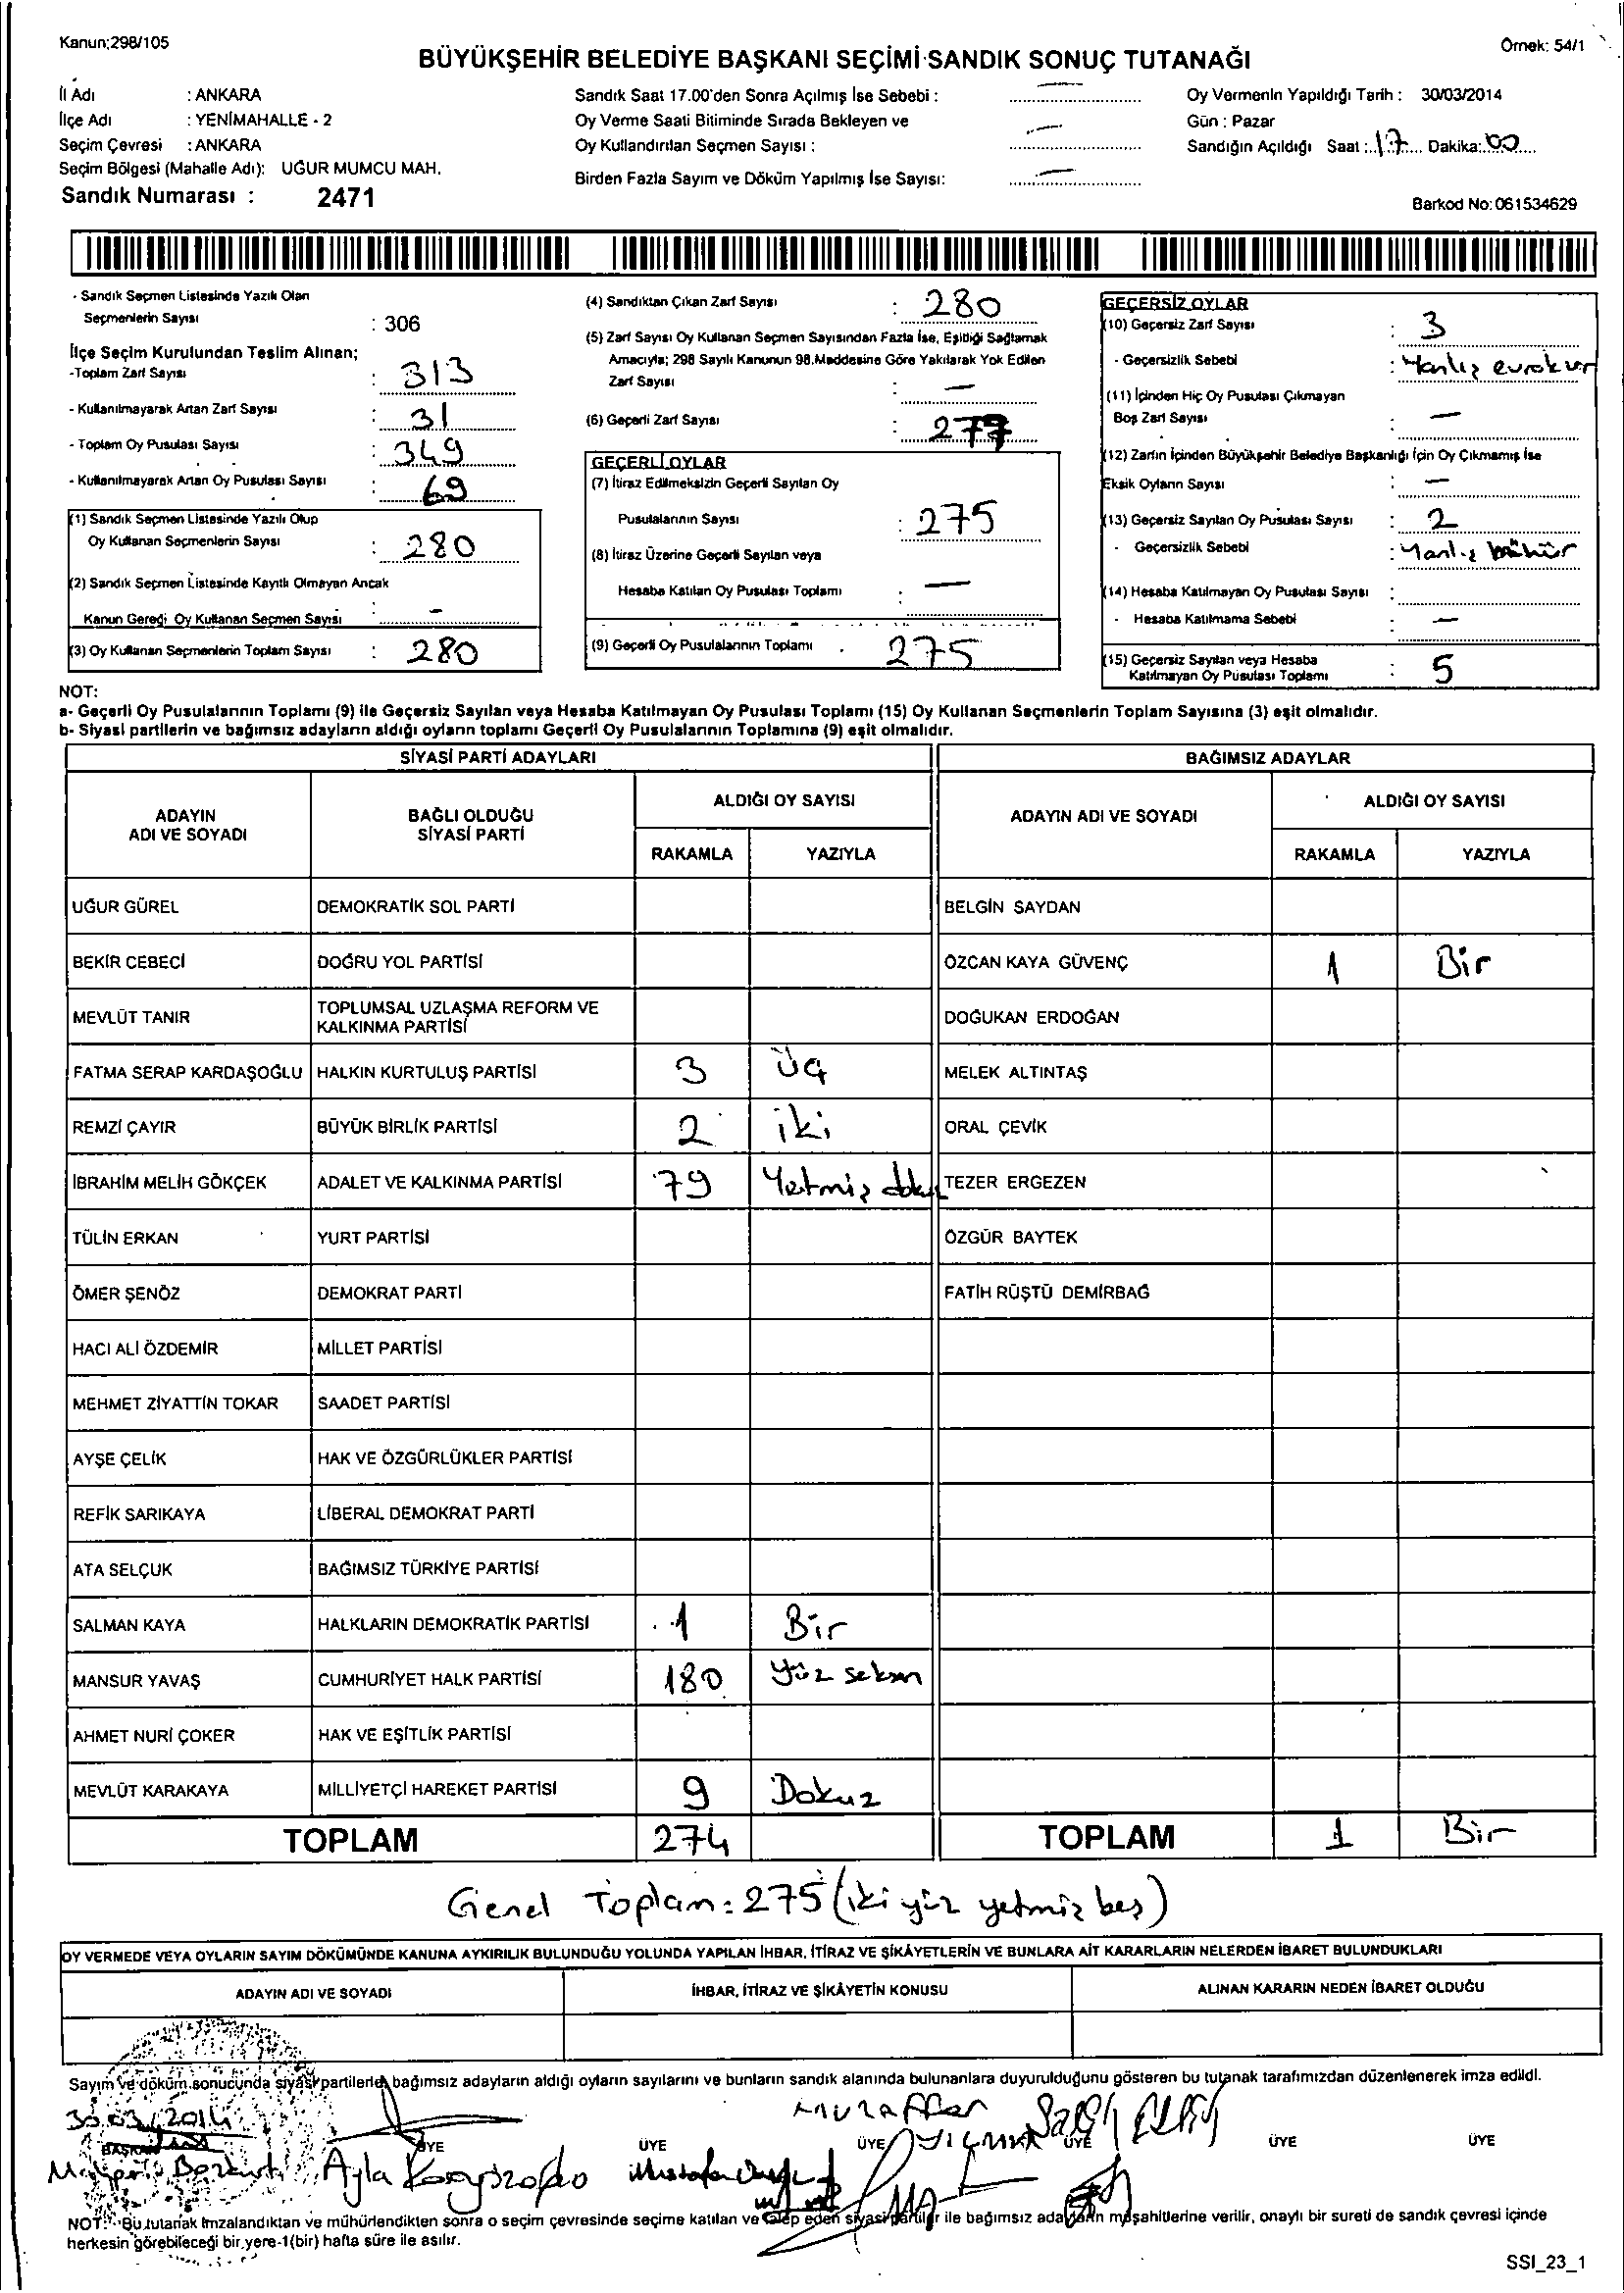 Kanun;298/105
Örnek: 54/1
BÜYÜKŞEHİR BELEDİYE BAŞKANI SEÇİMİ SANDIK SONUÇ TUTANAĞI
İl Adı : ANKARA
İlçe Adı : YENİMAHALLE - 2
Seçim Çevresi : ANKARA
Seçim Bölgesi (Mahalle Adı): UĞUR MUMCU MAH.
Sandık Numarası : 2471
Sandık Saat 17.00'den Sonra Açılmış İse Sebebi : —
Oy Verme Saati Bitiminde Sırada Bekleyen ve
Oy Kullandırılan Seçmen Sayısı : —
Birden Fazla Sayım ve Döküm Yapılmış İse Sayısı: —
Oy Vermenin Yapıldığı Tarih : 30/03/2014
Gün : Pazar
Sandığın Açıldığı Saat : 17 Dakika: 00
Barkod No: 061534629
- Sandık Seçmen Listesinde Yazılı Olan
Seçmenlerin Sayısı : 306
İlçe Seçim Kurulundan Teslim Alınan;
-Toplam Zarf Sayısı : 313
- Kullanılmayarak Artan Zarf Sayısı : 31
- Toplam Oy Pusulası Sayısı : 349
- Kullanılmayarak Artan Oy Pusulası Sayısı : 69
(1) Sandık Seçmen Listesinde Yazılı Olup
Oy Kullanan Seçmenlerin Sayısı : 280
(2) Sandık Seçmen Listesinde Kayıtlı Olmayan Ancak
Kanun Gereği Oy Kullanan Seçmen Sayısı : -
(3) Oy Kullanan Seçmenlerin Toplam Sayısı : 280
(4) Sandıktan Çıkan Zarf Sayısı : 280
(5) Zarf Sayısı Oy Kullanan Seçmen Sayısından Fazla İse, Eşitliği Sağlamak
Amacıyla; 298 Sayılı Kanunun 98.Maddesine Göre Yakılarak Yok Edilen
Zarf Sayısı : —
(6) Geçerli Zarf Sayısı : 277
GEÇERLİ OYLAR
(7) İtiraz Edilmeksizin Geçerli Sayılan Oy
Pusulalarının Sayısı : 275
(8) İtiraz Üzerine Geçerli Sayılan veya
Hesaba Katılan Oy Pusulası Toplamı : —
(9) Geçerli Oy Pusulalarının Toplamı 275
GEÇERSİZ OYLAR
(10) Geçersiz Zarf Sayısı : 3
- Geçersizlik Sebebi : Yanlış
(11) İçinden Hiç Oy Pusulası Çıkmayan
Boş Zarf Sayısı : —
(12) Zarfın İçinden Büyükşehir Belediye Başkanlığı İçin Oy Çıkmamış İse
Eksik Oyların Sayısı : —
(13) Geçersiz Sayılan Oy Pusulası Sayısı : 2
- Geçersizlik Sebebi : Yanlış mühür
(14) Hesaba Katılmayan Oy Pusulası Sayısı :
- Hesaba Katılmama Sebebi : —
(15) Geçersiz Sayılan veya Hesaba
Katılmayan Oy Pusulası Toplamı : 5
NOT:
a- Geçerli Oy Pusulalarının Toplamı (9) ile Geçersiz Sayılan veya Hesaba Katılmayan Oy Pusulası Toplamı (15) Oy Kullanan Seçmenlerin Toplam Sayısına (3) eşit olmalıdır.
b- Siyasi partilerin ve bağımsız adayların aldığı oyların toplamı Geçerli Oy Pusulalarının Toplamına (9) eşit olmalıdır.
SİYASİ PARTİ ADAYLARI BAĞIMSIZ ADAYLAR
ADAYIN
ADI VE SOYADI
BAĞLI OLDUĞU
SİYASİ PARTİ
ALDIĞI OY SAYISI
RAKAMLA YAZIYLA
ADAYIN ADI VE SOYADI
ALDIĞI OY SAYISI
RAKAMLA YAZIYLA
UĞUR GÜREL DEMOKRATİK SOL PARTİ BELGİN SAYDAN
BEKİR CEBECİ DOĞRU YOL PARTİSİ ÖZCAN KAYA GÜVENÇ 1 Bir
MEVLÜT TANIR TOPLUMSAL UZLAŞMA REFORM VE
KALKINMA PARTİSİ DOĞUKAN ERDOĞAN
FATMA SERAP KARDAŞOĞLU HALKIN KURTULUŞ PARTİSİ 3 üç MELEK ALTINTAŞ
REMZİ ÇAYIR BÜYÜK BİRLİK PARTİSİ 2 iki ORAL ÇEVİK
İBRAHİM MELİH GÖKÇEK ADALET VE KALKINMA PARTİSİ 79 Yetmiş dokuz TEZER ERGEZEN
TÜLİN ERKAN YURT PARTİSİ ÖZGÜR BAYTEK
ÖMER ŞENÖZ DEMOKRAT PARTİ FATİH RÜŞTÜ DEMİRBAĞ
HACI ALİ ÖZDEMİR MİLLET PARTİSİ
MEHMET ZİYATTİN TOKAR SAADET PARTİSİ
AYŞE ÇELİK HAK VE ÖZGÜRLÜKLER PARTİSİ
REFİK SARIKAYA LİBERAL DEMOKRAT PARTİ
ATA SELÇUK BAĞIMSIZ TÜRKİYE PARTİSİ
SALMAN KAYA HALKLARIN DEMOKRATİK PARTİSİ 1 Bir
MANSUR YAVAŞ CUMHURİYET HALK PARTİSİ 180 Yüz seksen
AHMET NURİ ÇOKER HAK VE EŞİTLİK PARTİSİ
MEVLÜT KARAKAYA MİLLİYETÇİ HAREKET PARTİSİ 9 Dokuz
TOPLAM 274 TOPLAM 1 Bir
Genel Toplam: 275 (iki yüz yetmiş beş)
OY VERMEDE VEYA OYLARIN SAYIM DÖKÜMÜNDE KANUNA AYKIRILIK BULUNDUĞU YOLUNDA YAPILAN İHBAR, İTİRAZ VE ŞİKÂYETLERİN VE BUNLARA AİT KARARLARIN NELERDEN İBARET BULUNDUKLARI
ADAYIN ADI VE SOYADI İHBAR, İTİRAZ VE ŞİKÂYETİN KONUSU ALINAN KARARIN NEDEN İBARET OLDUĞU
Sayım ve döküm sonucunda siyasi partilerle bağımsız adayların aldığı oyların sayılarını ve bunların sandık alanında bulunanlara duyurulduğunu gösteren bu tutanak tarafımızdan düzenlenerek imza edildi.
30.03/2014 Muzaffer
BAŞKAN ÜYE ÜYE ÜYE ÜYE ÜYE ÜYE
Bozkurt Ayla Mustafa
NOT: Bu tutanak imzalandıktan ve mühürlendikten sonra o seçim çevresinde seçime katılan ve talep eden siyasi partiler ile bağımsız adayların müşahitlerine verilir, onaylı bir sureti de sandık çevresi içinde
herkesin görebileceği bir yere-1(bir) hafta süre ile asılır.
SSI_23_1